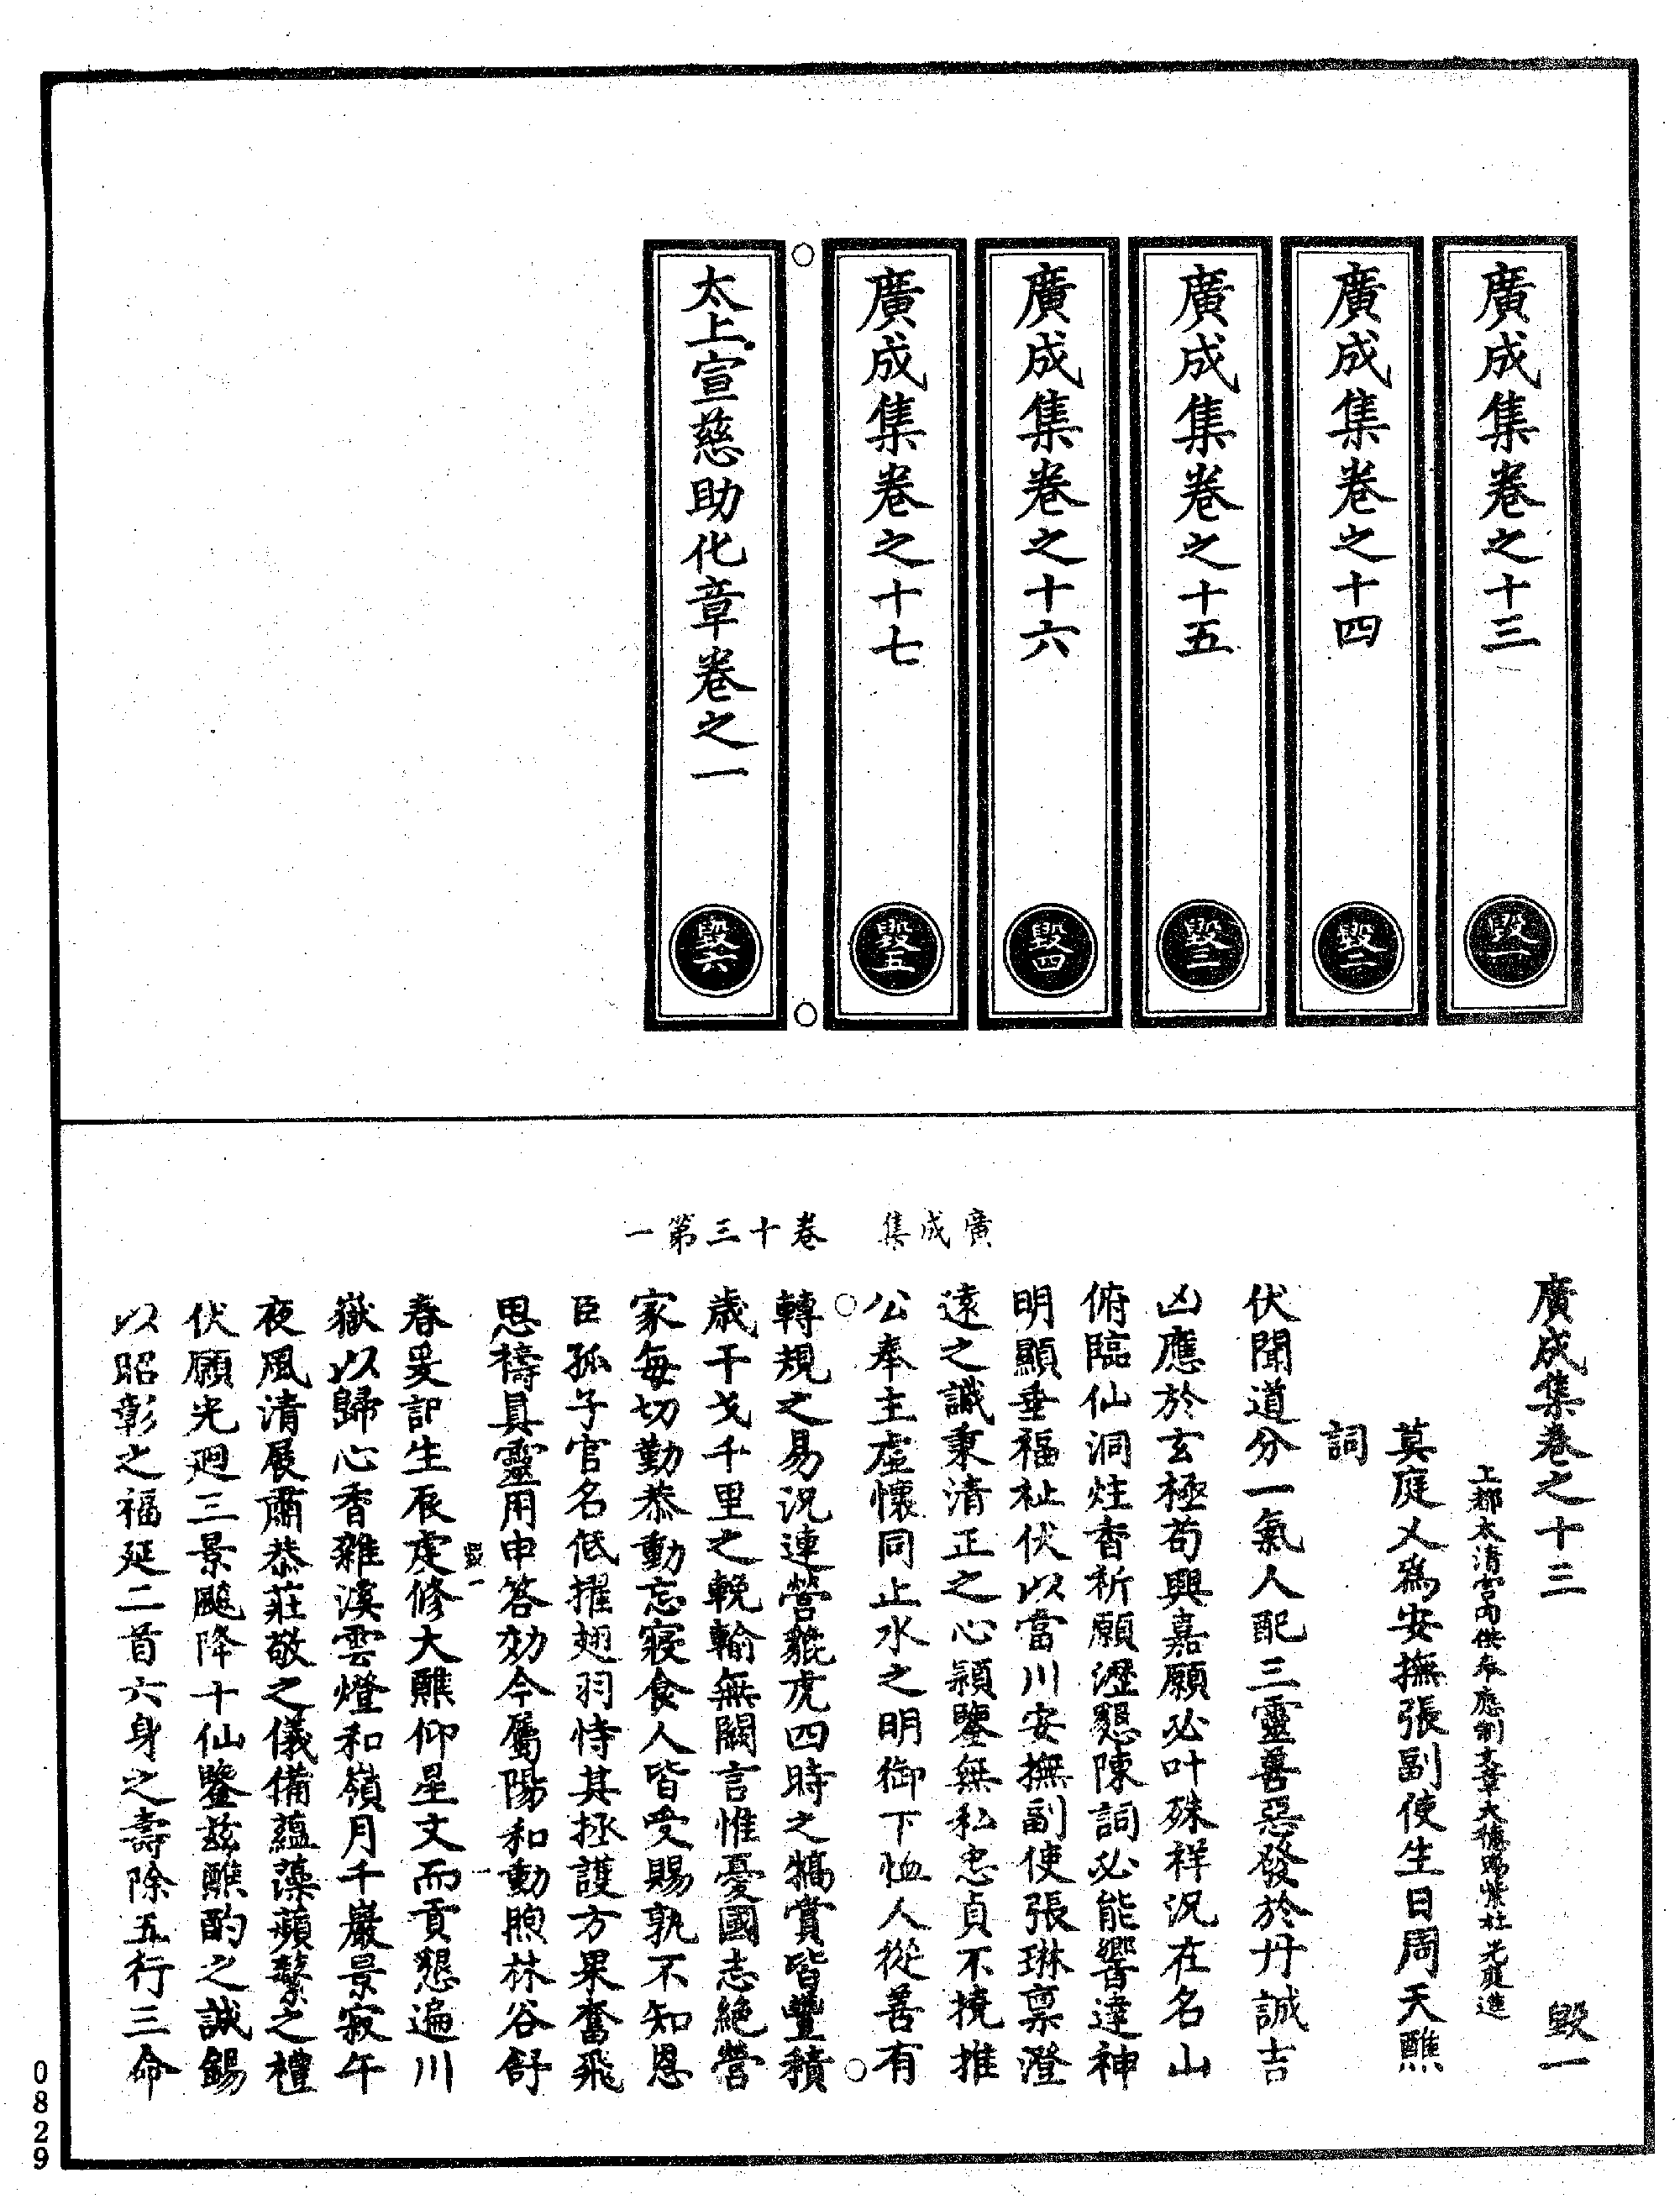 廣成集卷之十三
毀一
廣成集卷之十四
毀二
廣成集卷之十五
毀三
廣成集卷之十六
毀四
廣成集卷之十七
毀五
太上宣慈助化章卷之一
毀六
廣成集 卷十三第一
廣成集卷之十三 毀一
上都太清宮內供奉應制文章大德賜紫杜光庭進
莫庭乂爲安撫張副使生日周天醮
詞
伏聞道分一氣人配三靈善惡發於丹誠吉
凶應於玄極苟興嘉願必叶殊祥況在名山
俯臨仙洞炷香祈願瀝懇陳詞必能響達神
明顯垂福祉伏以當川安撫副使張琳稟澄
遠之識秉清正之心穎鑒無私忠貞不撓推
公奉主虛懷同止水之明御下恤人從善有
轉規之易況連營貔虎四時之犒賞皆豐積
歲干戈千里之輓輸無闕言惟憂國志絶營
家每切勤恭動忘寢食人皆受賜孰不知恩
臣孤子官名低摧翅羽恃其拯護方果奮飛
思禱真靈用申答効今屬陽和動煦林谷舒
毀一
春爰記生辰虔修大醮仰星文而貢懇遍川
嶽以歸心香雜漢雲燈和嶺月千巖景寂午
夜風清展肅恭莊敬之儀備蘊藻蘋蘩之禮
伏願光迴三景飈降十仙鑒兹醮酌之誠錫
以昭彰之福延二首六身之壽除五行三命
0829